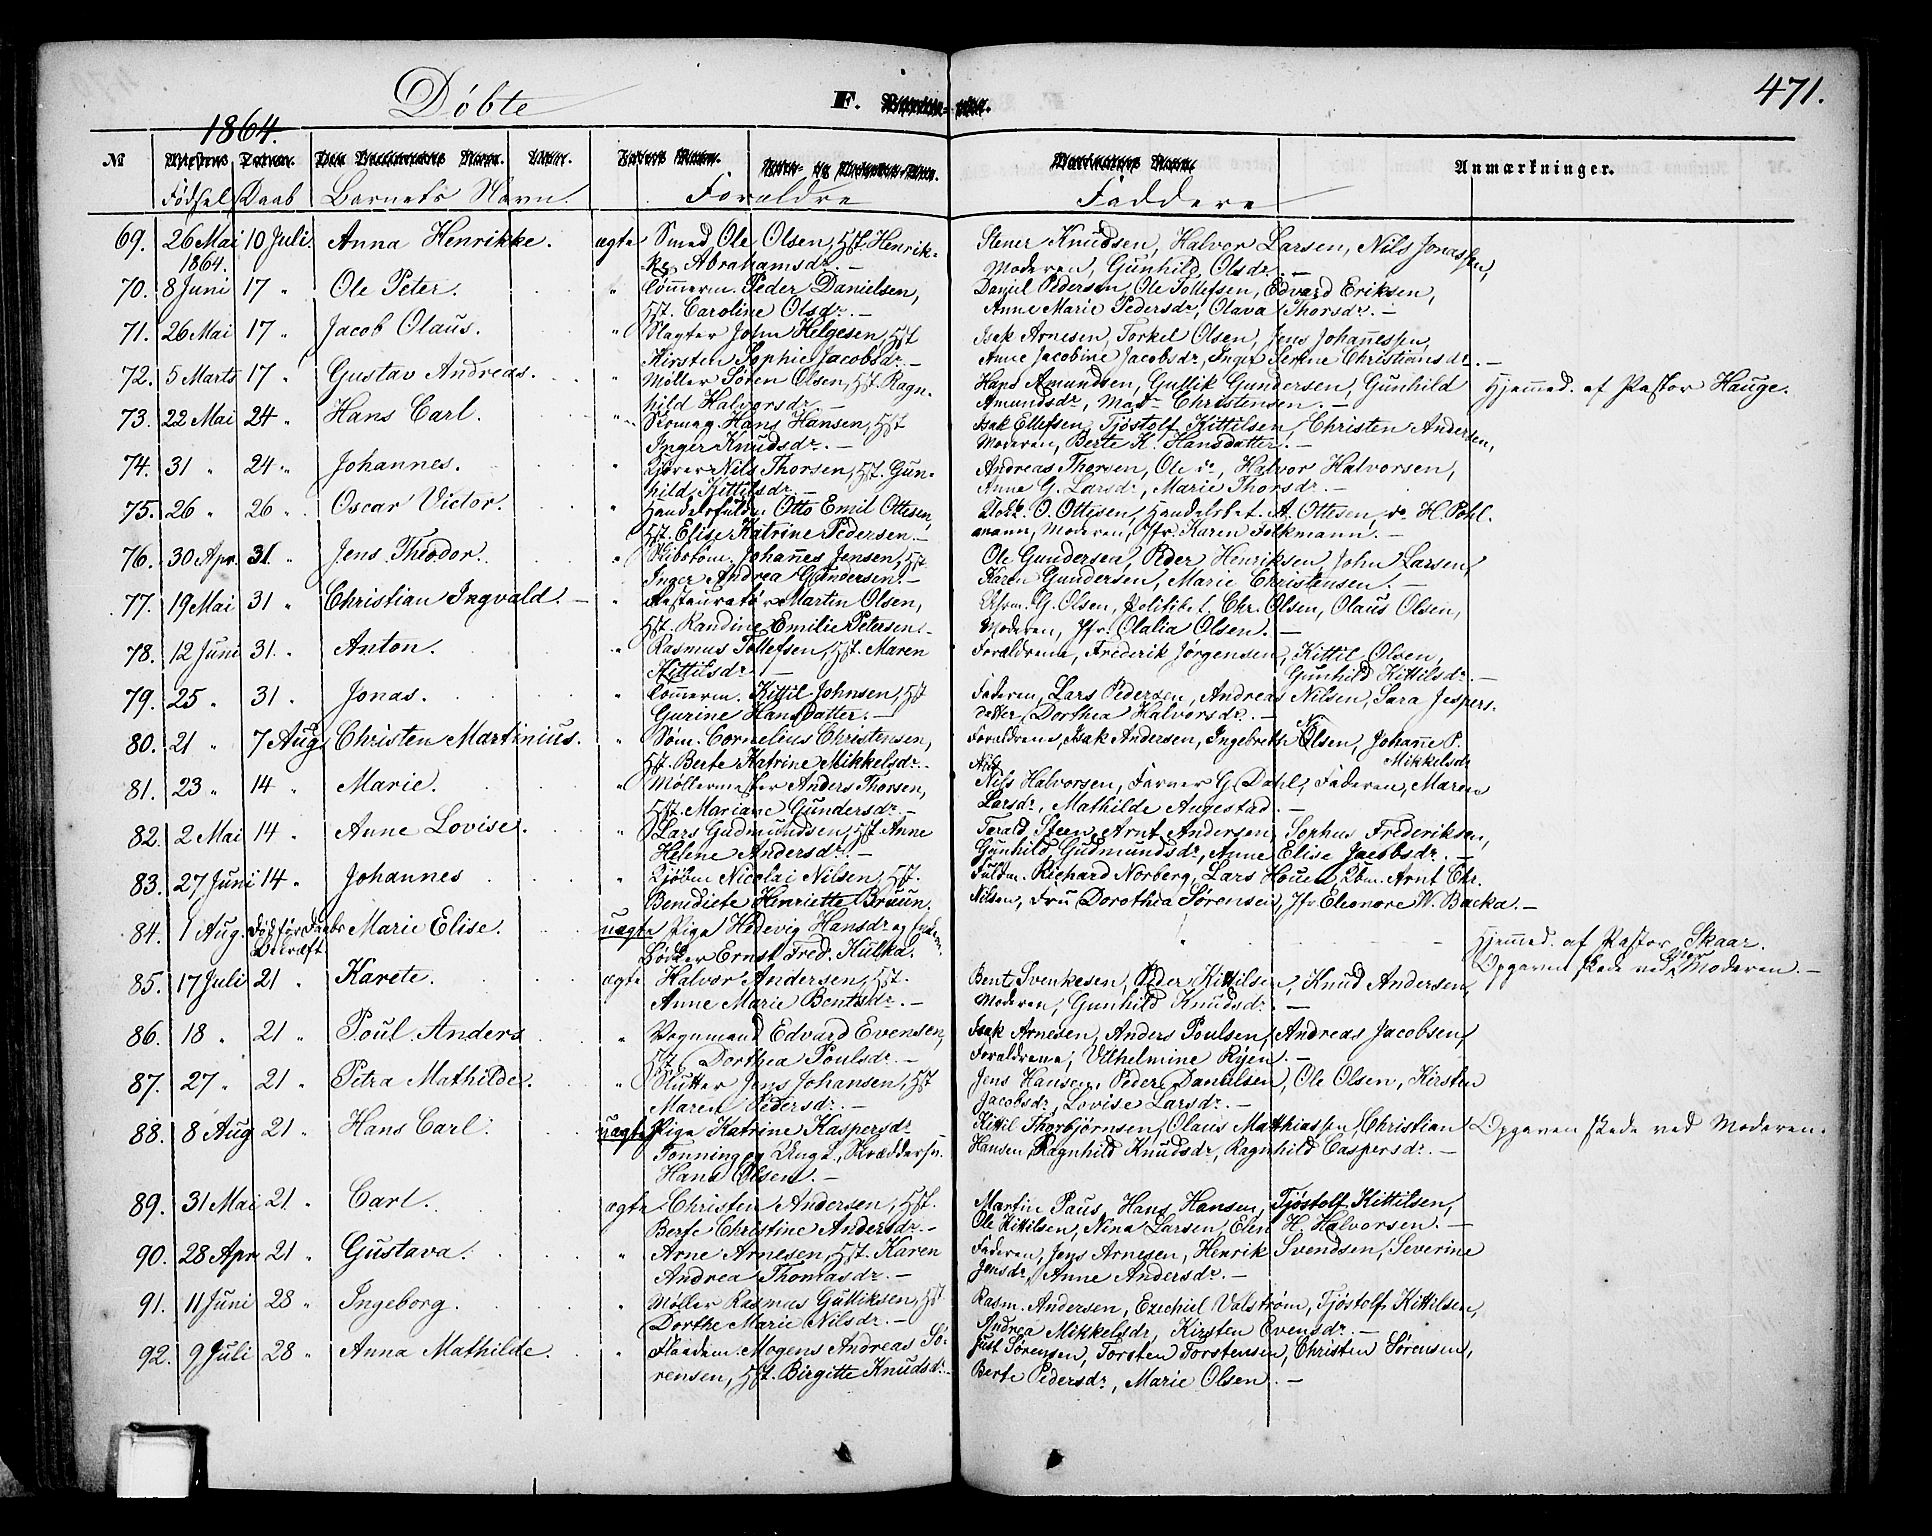 471.
Døbte
F.
1864.
№
Anmærkninger.
Fødsel Daab Barnets Navn. Forældre Faddere
69. 26 Mai 1864. 10 Juli. Anna Henrikke. ægte Smed Ole Olsen, Hst. Henrik- Stener Knudsen, Halvor Larsen, Nils Jonassen,
ke Abrahamsdr. — Moderen, Gunhild Olsdr. —
70. 8 Juni 17 " Ole Peter. " Tømmerm. Peder Danielsen, Daniel Pedersen, Ole Tollefsen, Edvard Eriksen,
Hst. Caroline Olsdr. — Anne Marie Pedersdr, Olava Thorsdr. —
71. 26 Mai 17 " Jacob Olaus. " Slagter John Helgesen, Hst Isak Arnesen, Torkel Olsen, Jens Johannessen,
Kirsten Sophie Jacobsdr. — Anne Jacobine Jacobsdr, Inger Serine Christiansdr. —
72. 5 Marts 17 " Gustav Andreas. " Møller Søren Olsen, Hst. Ragn- Hans Amundsen, Gullik Gundersen, Gunhild Hjemmed. af Pastor Hauge.
hild Halvorsdr. — Amundsdr, Mad. Christensen. —
73. 22 Mai 24 " Hans Carl. " Hans Hansen, Hst Isak Ellefsen, Tjøstolf Kittilsen, Christen Andersen,
Inger Knudsdr. — Moderen, Berte K. Hansdatter. —
74. 31 " 24 " Johannes. " Nils Thorsen, Hst. Gun- Andreas Thorsen, Ole do, Halvor Halvorsen,
hild Kittilsdr. — Anne G. Larsdr, Marie Thorsdr. —
75. 26 " 26 " Oscar Victor. " Handelsfuldm. Otto Emil Ottesen, O. Ottesen, Handelsbet. A. Ottesen, do H. Pohl-
Hst. Elise Katrine Pedersen. — mann, Moderen, Jfr. Karen Folkmann. —
76. 30 Apr. 31 " Jens Theodor. " Skibstøm. Johannes Jensen, Hst Ole Gundersen, Peder Henriksen, John Larsen,
Inger Andrea Gundersen. — Karen Gundersen, Marie Christensen. —
77. 19 Mai 31 " Christian Ingvald. — " Restauratør Martin Olsen, G. Olsen, Politibet. Chr. Olsen, Olaus Olsen,
Hst. Randine Emilie Petersen. Moderen, Jfr. Olalia Olsen. —
78. 12 Juni 31. " Anton. " Rasmus Tollefsen, Hst. Maren Forældrene, Frederik Jørgensen, Kittil Olsen,
Kittilsdr. — Gunhild Kittilsdr. —
79. 25 " 31 " Jonas. " Tømmerm. Kittil Johnsen, Hst Faderen, Lars Pedersen, Andreas Nilsen, Sara Jespers-
Gurine Hansdatter. — datter, Dorthea Halvorsdr. —
80. 21 " 7 Aug Christen Martinius. " Søm. Cornelius Christensen, Forældrene, Isak Andersen, Ingebrethe Olsen, Johanne P.
Hst. Berte Katrine Mikkelsdr. Mikkelsdr
81. 23 " 14 " Marie. " Møllermester Anders Thorsen, Nils Halvorsen, Farver G. Dahl, Faderen, Maren
Hst. Mariane Gundersdr. — Larsdr, Mathilde Angestad. —
82. 2 Mai 14 " Anne Lovise. " Lars Gudmundsen, Hst. Anne Torald Steen, Arnt Andersen, Sophus Frederiksen,
Helene Andersdr. — Gunhild Gudmundsdr, Anne Elise Jacobsdr. —
83. 27 Juni 14 " Johannes " Nicolai Nilsen, Hst. Fuldm. Richard Norberg, Lars Houen, Arnt Chr.
Benedicte Henriette Bruun. Nilsen, Fru Dorothea Sørensen, Jfr Eleonore W. Backa. —
84. 1 Aug. Marie Elise. uægte Pige Hedevig Hansdr og Hjemmed. af Pastor Skaar.
Bekræft. Bødker Ernst Fred. Kulka. Opgaven skede ved Moderen. —
85. 17 Juli 21 " Karete. ægte Halvor Andersen, Hst. Bent Svenkesen, Peder Kittilsen, Knud Andersen,
Anne Marie Bentsdr. — Moderen, Gunhild Knudsdr. —
86. 18 " 21 " Poul Anders " Vognmand Edvard Evensen, Isak Arnesen, Anders Poulsen, Andreas Jacobsen,
Hst. Dorthea Poulsdr. — Forældrene, Vilhelmine Ryen. —
87. 27 " 21 " Petra Mathilde. " Slutter Jens Johansen, Hst Jens Hansen, Peder Danielsen, Ole Olsen, Kirsten
Maren Pedersdr. — Jacobsdr, Lovise Larsdr. —
88. 8 Aug 21 " Hans Carl. uægte Pige Katrine Kaspersdr Kittil Thorbjørnsen, Olaus Matthiassen, Christian Opgaven skede ved Moderen.
Skræddersv. Hansen, Ragnhild Knudsdr, Ragnhild Caspersdr. —
Hans Olsen. —
89. 31 Mai 21 " Carl. ægte Christen Andersen, Hst. Martin Paus, Hans Hansen, Tjøstolf Kittilsen,
Berte Christine Andersdr. — Ole Kittilsen, Nina Larsen, Elen H. Halvorsen. —
90. 28 Apr 21 " Gustava. " Arne Arnesen, Hst. Karen Faderen, Jens Arnesen, Henrik Svendsen, Severine
Andrea Thomasdr. — Jensdr, Anne Andersdr. —
91. 11 Juni 28 " Ingeborg. " Møller Rasmus Gulliksen, Hst Rasm. Andersen, Ezechiel Valstrøm, Tjøstolf Kittilsen,
Dorthe Marie Nilsdr. — Andrea Mikkelsdr, Kirsten Evensdr. —
92. 9 Juli 28 " Anna Mathilde. " Mogens Andreas Sö- Just Sørensen, Torsten Torstensen, Christen Sørensen,
rensen, Hst. Birgitte Knudsdr. Berte Pedersdr, Marie Olsen. —